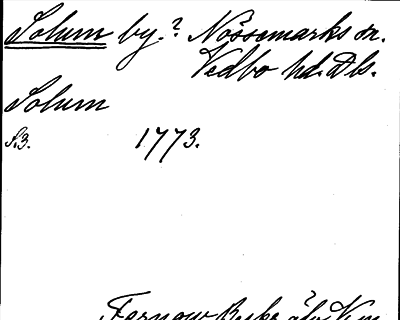 Solum by.? Nössemarks sn.
Vedbo hd. Dls.
Solum
S.3. 1773.
Fernow Beskr. äfv.